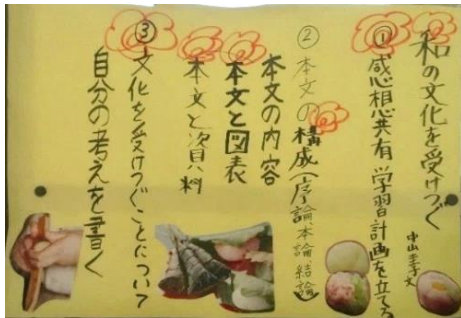 和の文化を受けつぐ
中山圭子文
①感想共有 学習計画を立てる
②本文の構成(序論、本論、結論)
本文の内容
本文と図表
本文と資料
③文化を受けつぐことについて
自分の考えを書く